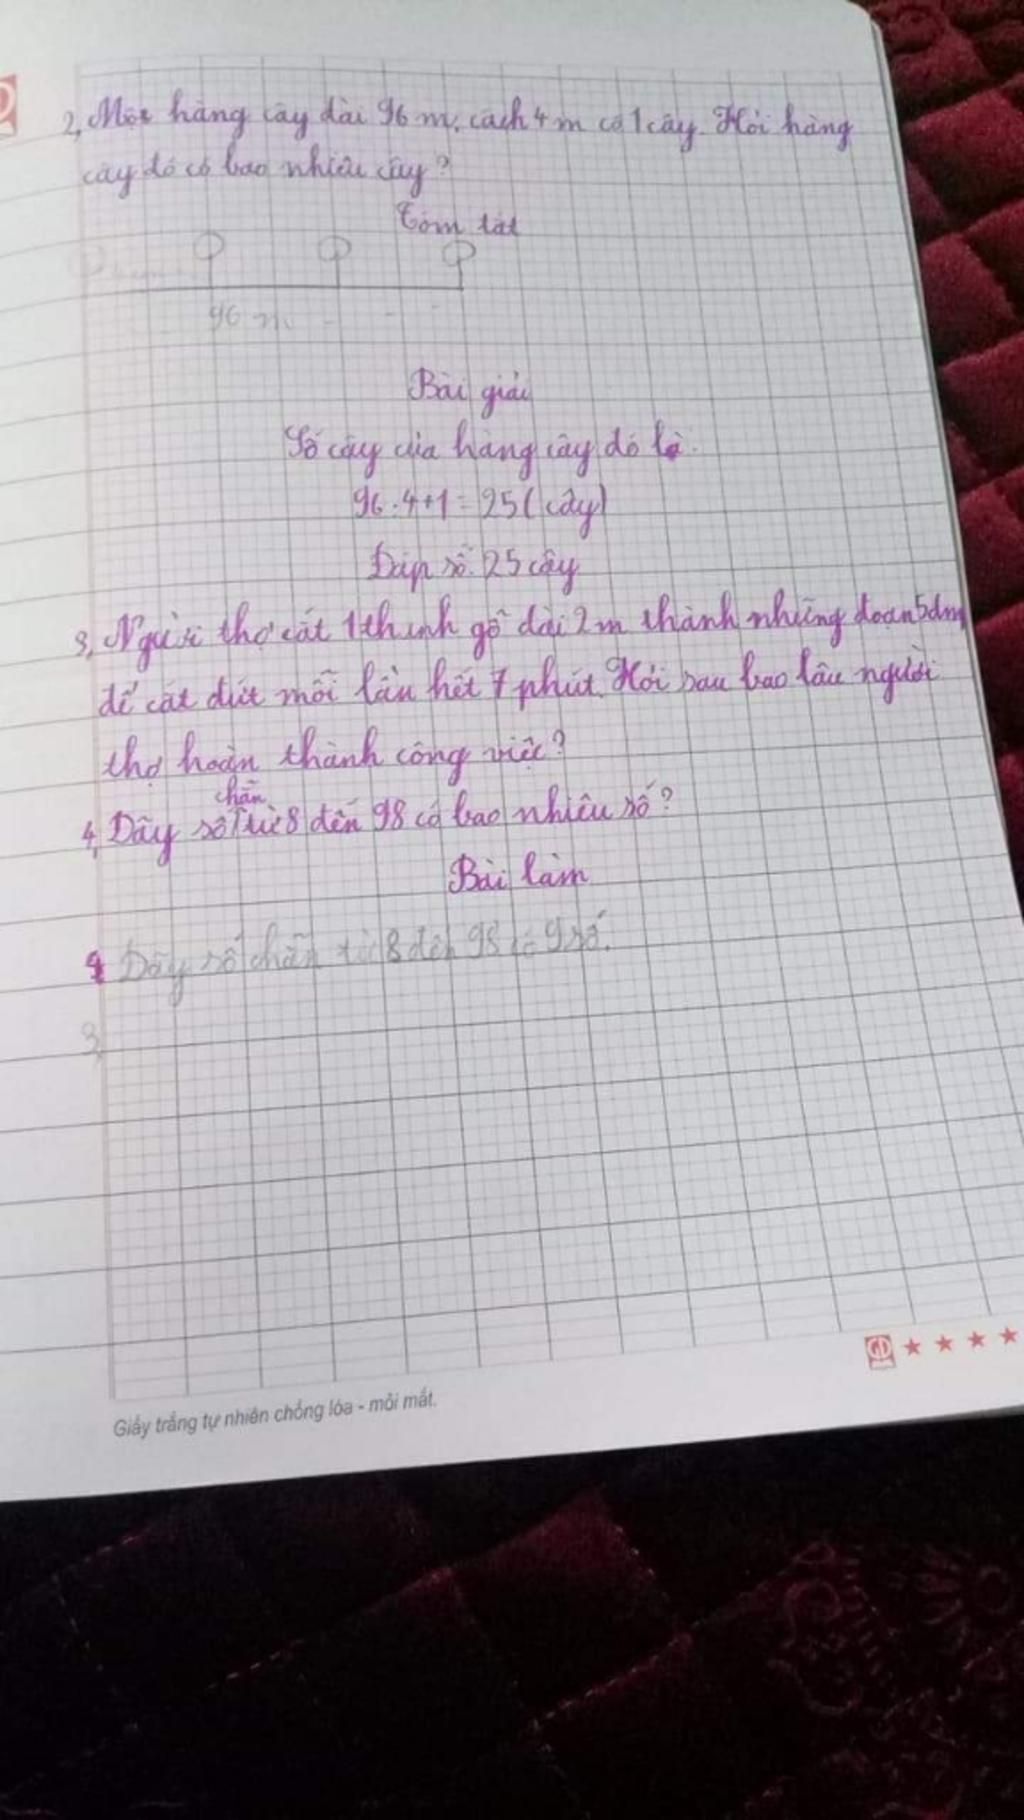 2, Một hàng cây dài 96 m, cách 4 m có 1 cây. Hỏi hàng
cây đó có bao nhiêu cây?
Tóm tắt
96 m
Bài giải
Số cây của hàng cây đó là:
96:4+1=25(cây)
Đáp số: 25 cây
3, Người thợ cắt 1 thanh gỗ dài 2 m thành những đoạn 5dm
để cắt đứt mỗi lần hết 7 phút. Hỏi sau bao lâu người
thợ hoàn thành công việc?
chẵn
4, Dãy số từ 8 đến 98 có bao nhiêu số?
Bài làm
4 Dãy số chẵn từ 8 đến 98 có 9 số.
3,
Giấy trắng tự nhiên chống lóa - mỏi mắt.
GD